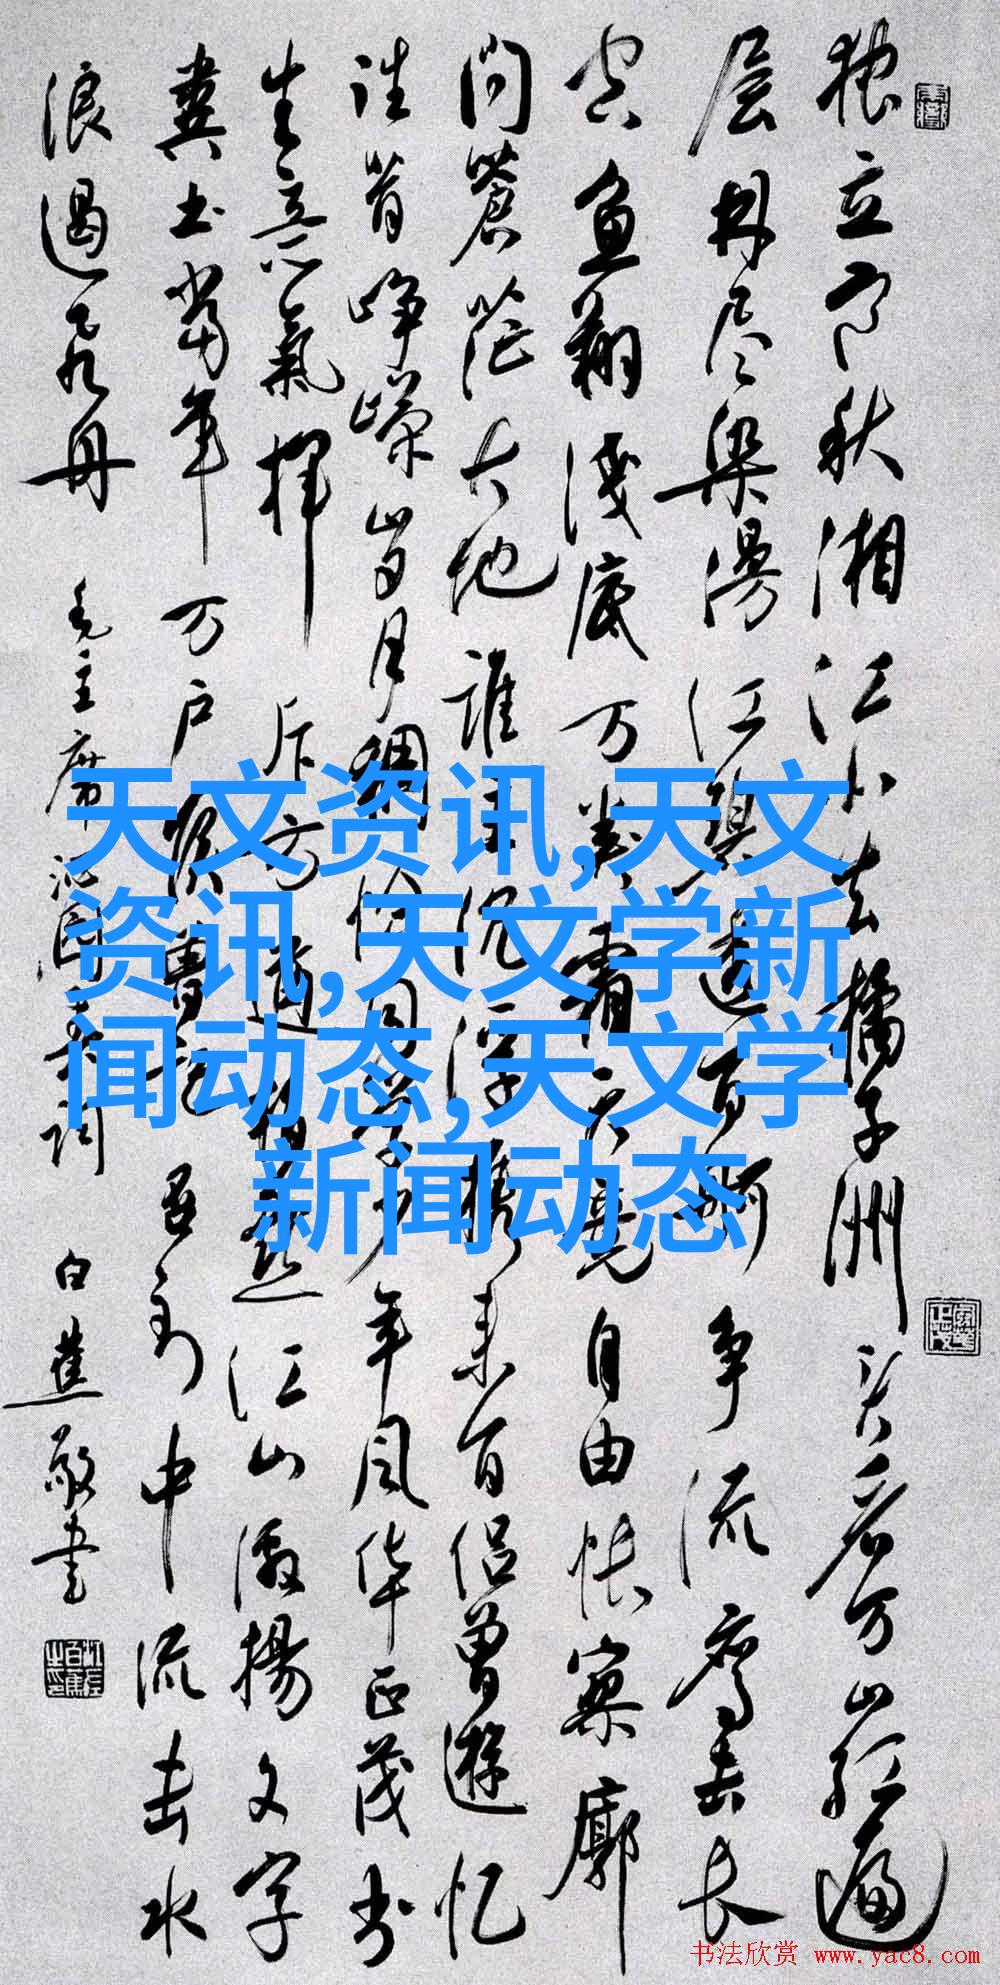 独立寒秋湘江北去橘子洲头看万山红遍
层林尽染漫江碧透百舸争流鹰击长
空鱼翔浅底万类霜天竞自由怅寥廓
问苍茫大地谁主沉浮携来百侣曾游忆
往昔峥嵘岁月稠恰同学少年风华正茂书
生意气挥斥方遒指点江山激扬文字
粪土当年万户侯曾记否到中流击水
浪遏飞舟
毛主席沁园春词
白蕉敬书
天文资讯,天文
资讯,天文学新
闻动态,天文学
新闻动态
书法欣赏 www.yac8.com